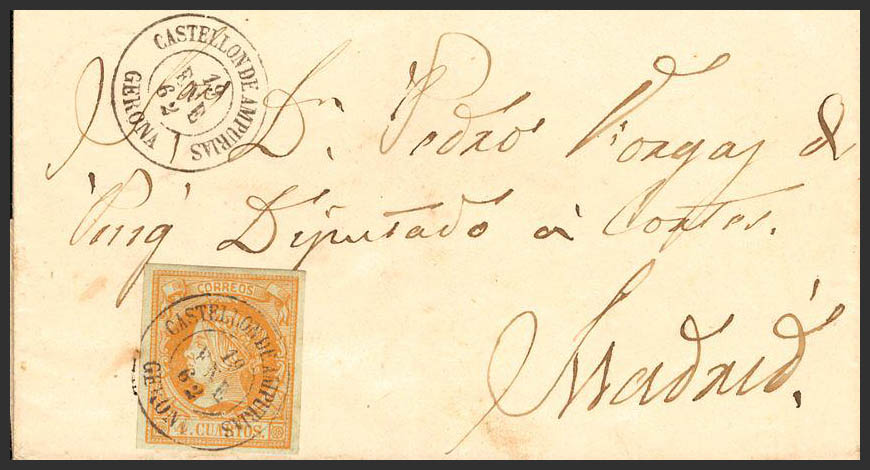 CASTELLON DE AMPURIAS
19
ENE
62
GERONA
Dn. Pedro Vorgas &
Puig Diputado à Cortes.
Madrid.
CORREOS
CASTELLON DE AMPURIAS
19
ENE
62
GERONA
4 CUARTOS.